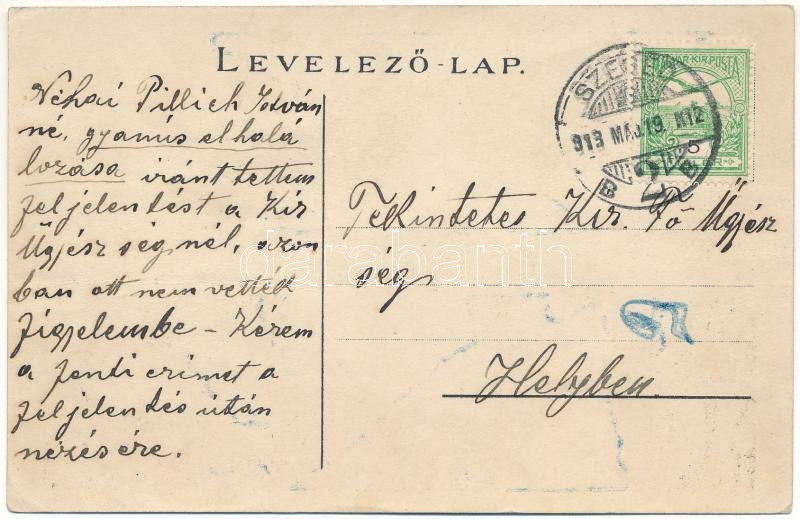 LEVELEZŐ-LAP.
Néhai Pillich István
né, gyanús elhalá
lozása iránt tettem
feljelentést a Kir
Ügjész ségnél, azon
ban ott nem vették
figjelembe – Kérem
a fenti czimet a
feljelentés után
nézésére.
MAGYAR KIR. POSTA
5
SZEGED
913 MÁJ. 19. N12
B 2 B
Tekintetes Kir. Fő Ügjész
ség
Helyben.
darabanth